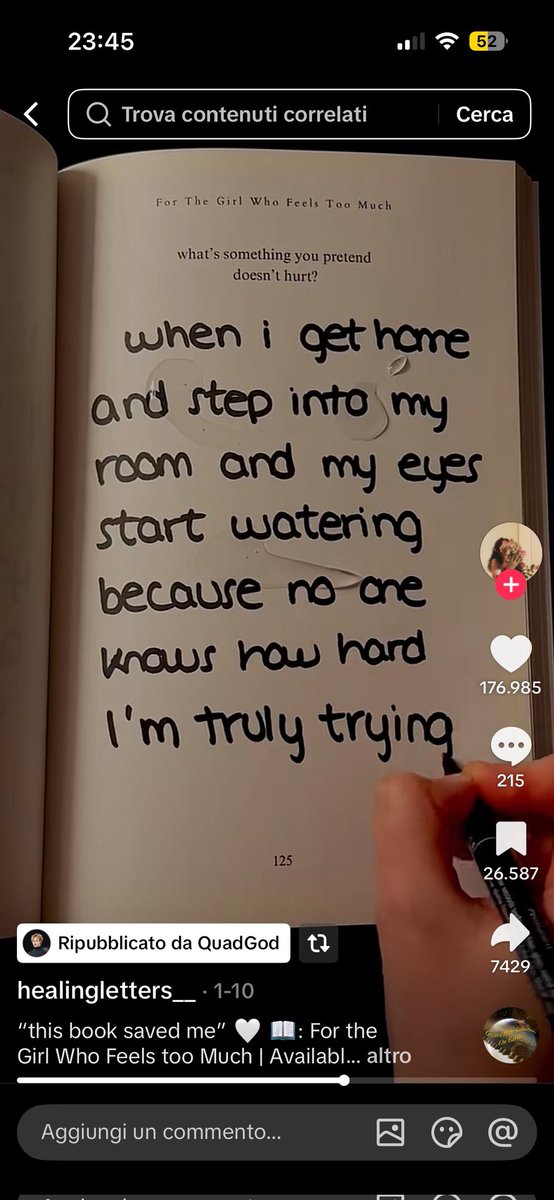 23:45
52
Trova contenuti correlati
Cerca
For The Girl Who Feels Too Much
what's something you pretend
doesn't hurt?
when i get home
and step into my
room and my eyes
start watering
because no one
knows how hard
I'm truly trying
125
176.985
215
26.587
7429
Ripubblicato da QuadGod
healingletters__ · 1-10
“this book saved me” 🤍 📖: For the
Girl Who Feels too Much | Availabl... altro
Aggiungi un commento...